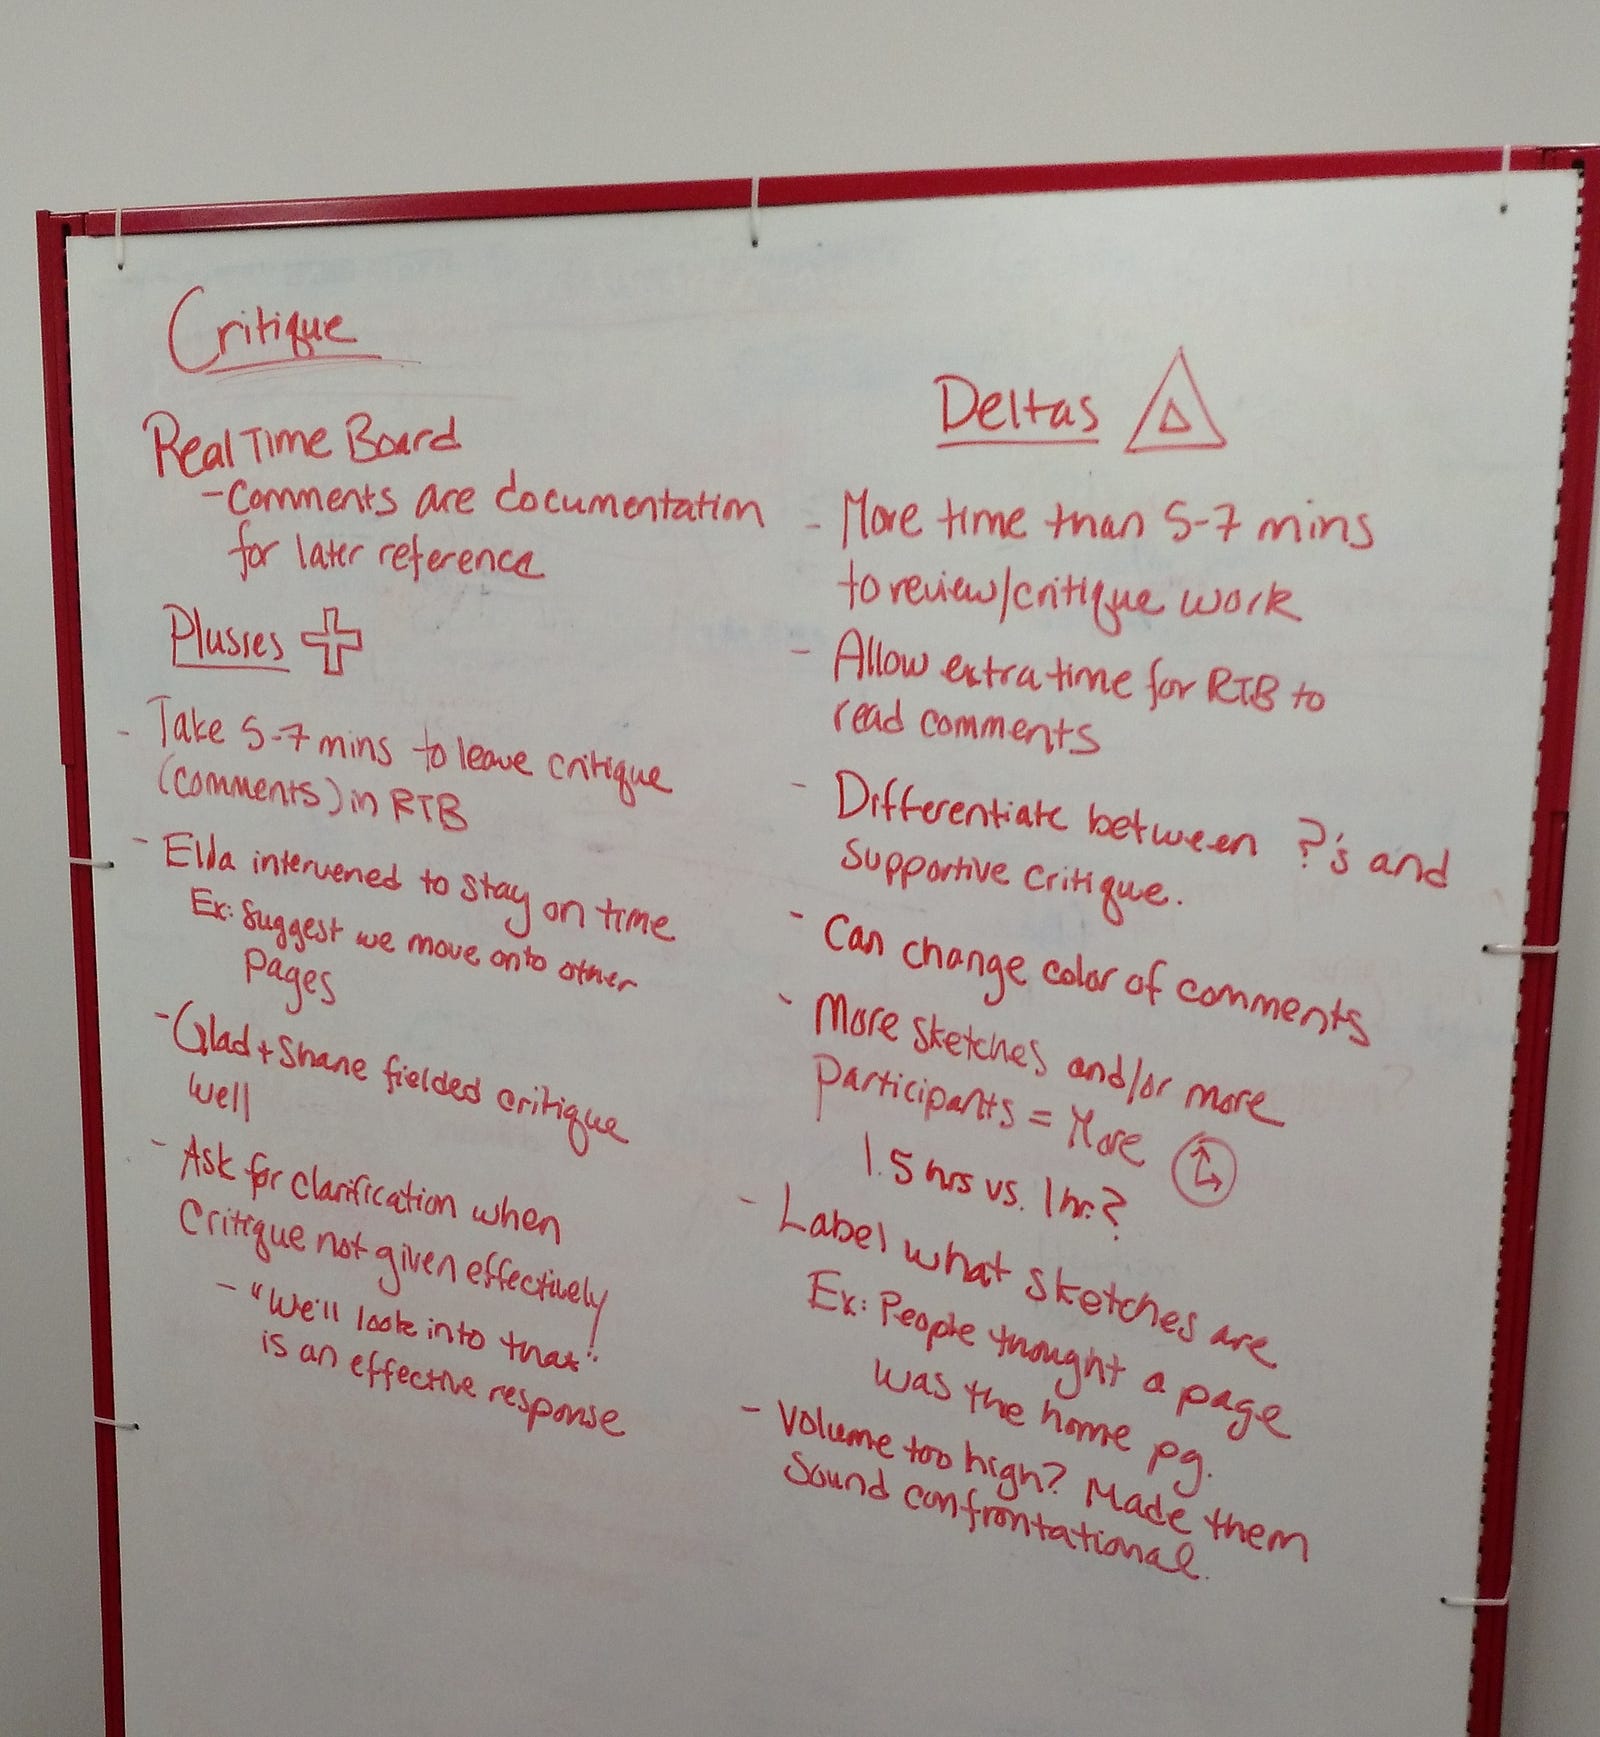 Critique
Real Time Board
- Comments are documentation
for later reference
Plusses
- Take 5-7 mins to leave critique
(comments) in RTB
- Elda intervened to stay on time
Ex: Suggest we move onto other
pages
- Glad + Shane fielded critique
well
- Ask for clarification when
Critique not given effectively
- "We'll look into that"
is an effective response
Deltas
- More time than 5-7 mins
to review/critique work
- Allow extra time for RTB to
read comments
- Differentiate between ?'s and
supportive critique.
- Can change color of comments
- More sketches and/or more
participants = More
1.5 hrs vs. 1 hr.?
- Label what sketches are
Ex: People thought a page
was the home pg.
- Volume too high? Made them
Sound confrontational.